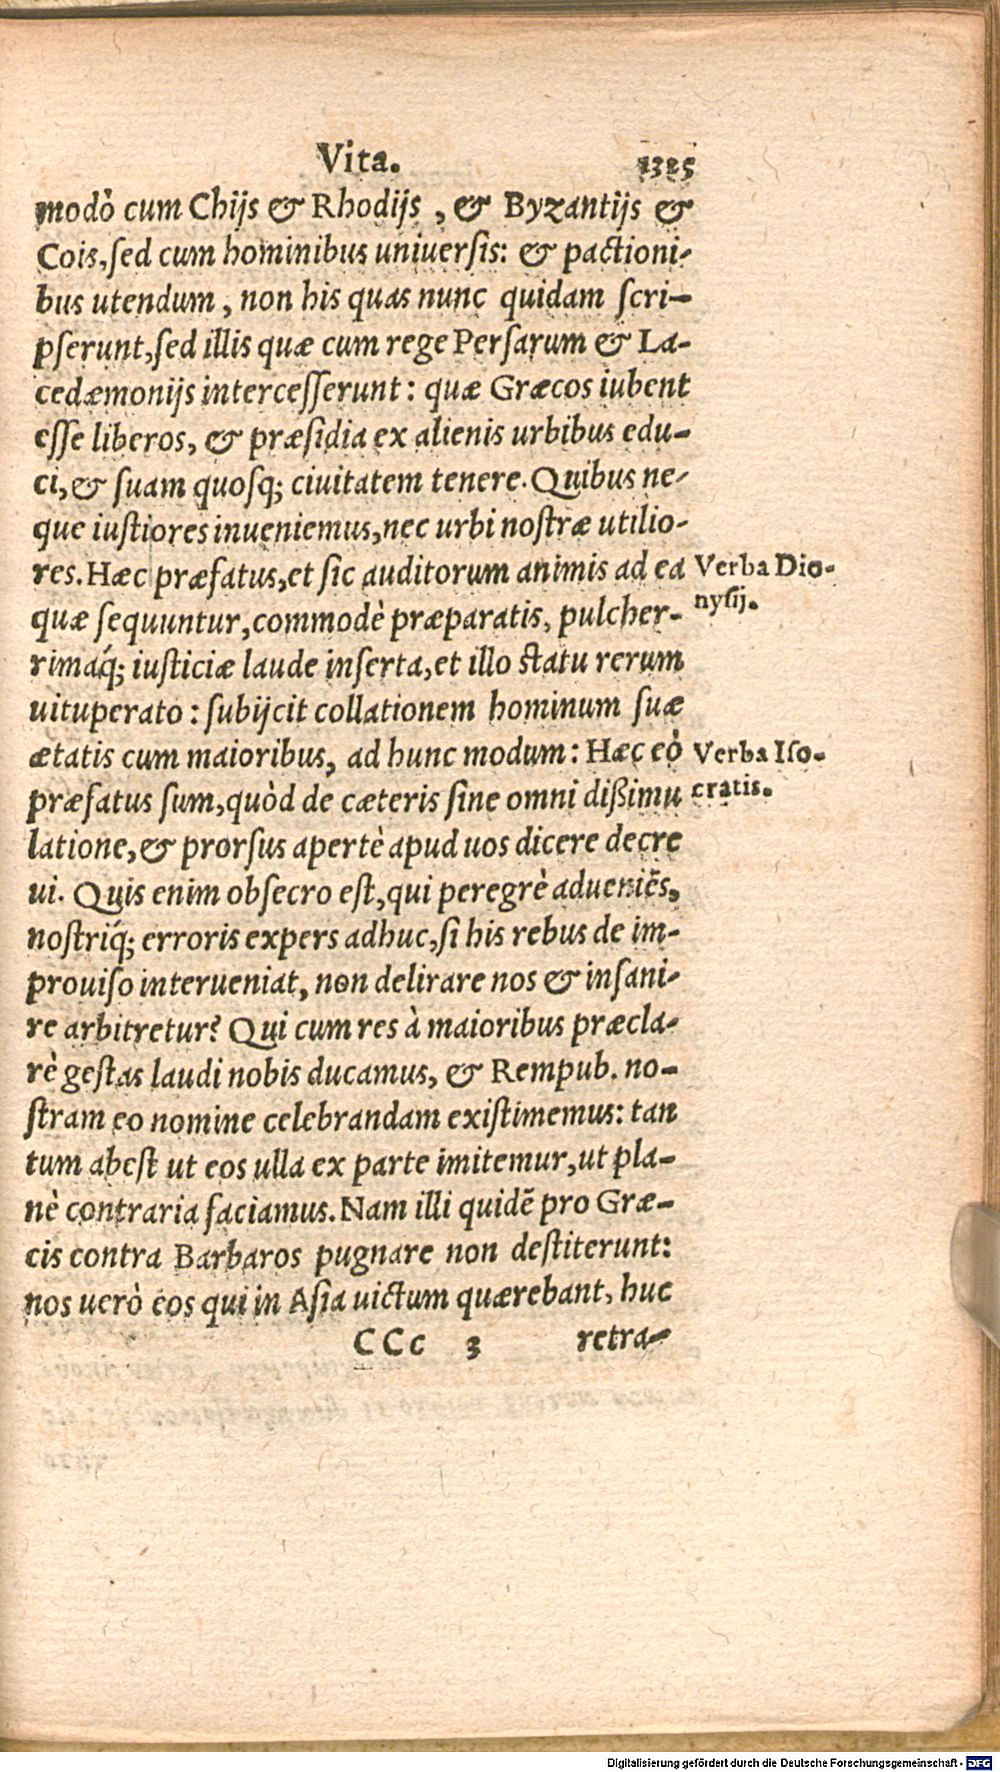 Vita. 1325
modò cum Chijs & Rhodijs , & Byzantijs &
Cois, ſed cum hominibus uniuerſis: & pactioni-
bus utendum , non his quas nunc quidam ſcri-
pſerunt, ſed illis quæ cum rege Perſarum & La-
cedæmonijs interceſſerunt: quæ Græcos iubent
eſſe liberos, & præſidia ex alienis urbibus edu-
ci, & ſuam quoſq; ciuitatem tenere. Quibus ne-
que iuſtiores inueniemus, nec urbi noſtræ utilio-
res. Hæc præfatus, et ſic auditorum animis ad ea
Verba Dio-
nyſij.
quæ ſequuntur, commodè præparatis, pulcher-
rimaq́; iuſticiæ laude inſerta, et illo ſtatu rerum
uituperato: ſubijcit collationem hominum ſuæ
ætatis cum maioribus, ad hunc modum: Hæc eò
Verba Iſo-
cratis.
præfatus ſum, quòd de cæteris ſine omni dißimu
latione, & prorſus apertè apud uos dicere decre
ui. Quis enim obſecro eſt, qui peregrè adueniẽs,
noſtriq́; erroris expers adhuc, ſi his rebus de im-
prouiſo interueniat, non delirare nos & inſani-
re arbitretur? Qui cum res à maioribus præcla-
rè geſtas laudi nobis ducamus, & Rempub. no-
ſtram eo nomine celebrandam exiſtimemus: tan
tum abeſt ut eos ulla ex parte imitemur, ut pla-
nè contraria faciamus. Nam illi quidẽ pro Græ-
cis contra Barbaros pugnare non deſtiterunt:
nos uerò eos qui in Aſia uictum quærebant, huc
CCc 3 retra-
Digitalisierung gefördert durch die Deutsche Forschungsgemeinschaft - DFG